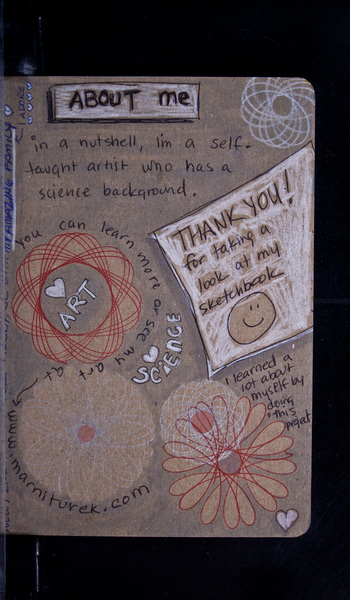 ABOUT me
I ADORE
AMAZING FAMILY
in a nutshell, i'm a self-
taught artist who has a
science background.
THANK YOU!
for taking a
look at my
sketchbook
you can learn more or see my art at
ART
SCIENCE
www.marniturek.com
I learned a
lot about
myself by
doing
this
project